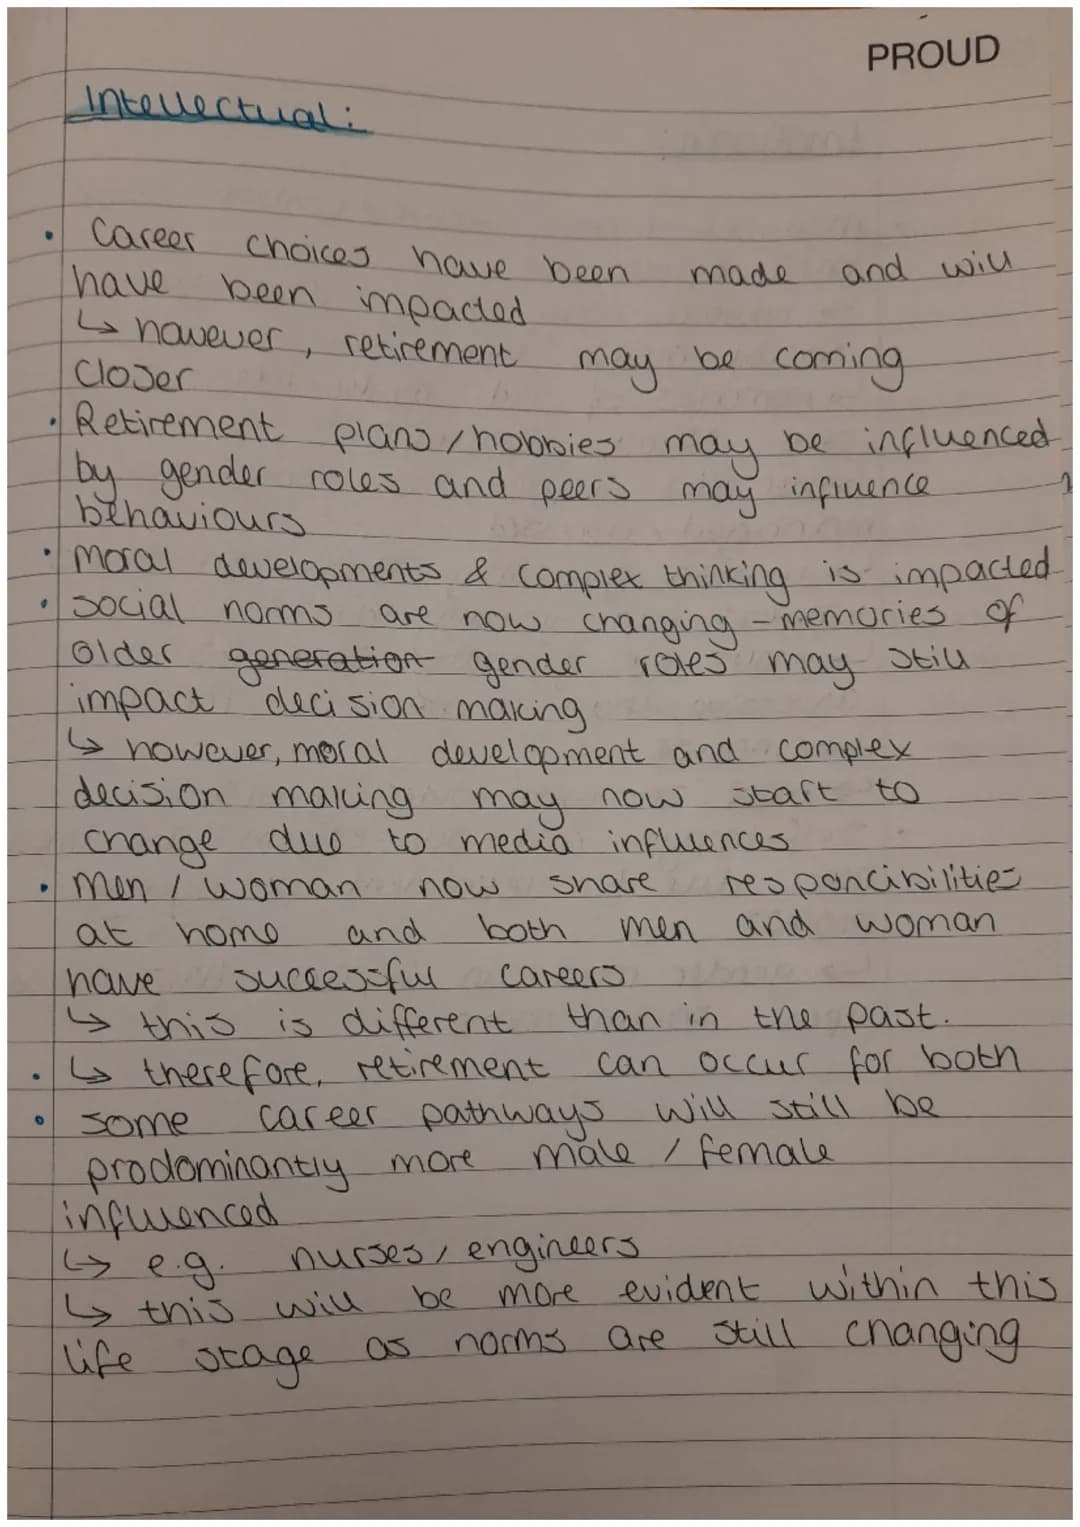 PROUD
Intellectual:
• Career choices have been made and will
have been impacted
↳ however, retirement may be coming
closer
• Retirement plans/hobbies may be influenced
by gender roles and peers may influence
behaviours
• Moral developments & complex thinking is impacted
• social norms are now changing - memories of
older generation gender roles may still
impact decision making
↳ however, moral development and complex
decision making may now start to
change due to media influences
• men / woman now share responcibilities
at home and both men and woman
have successful careers
↳ this is different than in the past.
• ↳ therefore, retirement can occur for both
• some career pathways will still be
prodominantly more male / female
influenced
↳ e.g. nurses, engineers
↳ this will be more evident within this
life stage as norms are still changing